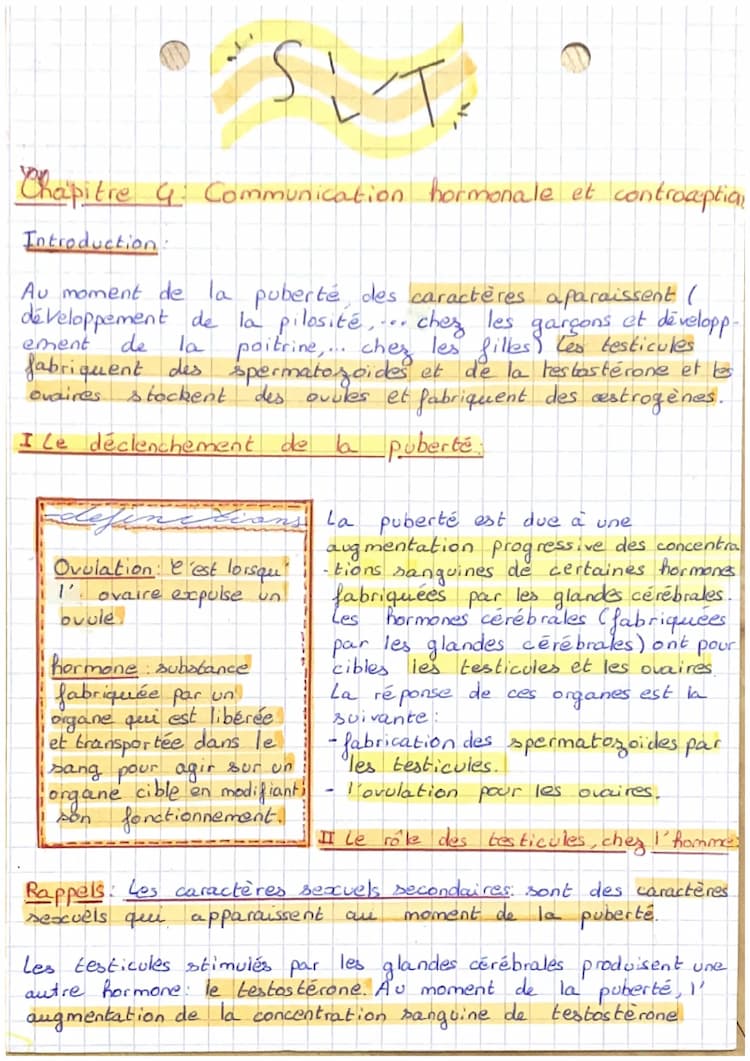 SVT
Chapitre 4: Communication hormonale et contraception
Introduction:
Au moment de la puberté, des caractères aparaissent (
développement de la pilosité,... chez les garçons et développ-
ement de la poitrine,... chez les filles) Les testicules
fabriquent des spermatozoïdes et de la testostérone et les
ovaires stockent des ovules et fabriquent des œstrogènes.
I Le déclenchement de la puberté:
définitions:
Ovulation: C'est lorsqu'
l' ovaire expulse un
ovule.
hormone: substance
fabriquée par un
organe qui est libérée
et transportée dans le
sang pour agir sur un
organe cible en modifiant
son fonctionnement.
La puberté est due à une
augmentation progressive des concentra
-tions sanguines de certaines hormones
fabriquées par les glandes cérébrales.
Les hormones cérébrales (fabriquées
par les glandes cérébrales) ont pour
cibles les testicules et les ovaires.
La réponse de ces organes est la
suivante:
-fabrication des spermatozoïdes par
les testicules.
- l'ovulation pour les ovaires.
II Le rôle des testicules, chez l'homme:
Rappels: Les caractères sexuels secondaires: sont des caractères
sexuels qui apparaissent au moment de la puberté.
Les testicules stimulés par les glandes cérébrales produisent une
autre hormone: le testostérone. Au moment de la puberté, l'
augmentation de la concentration sanguine de testostérone